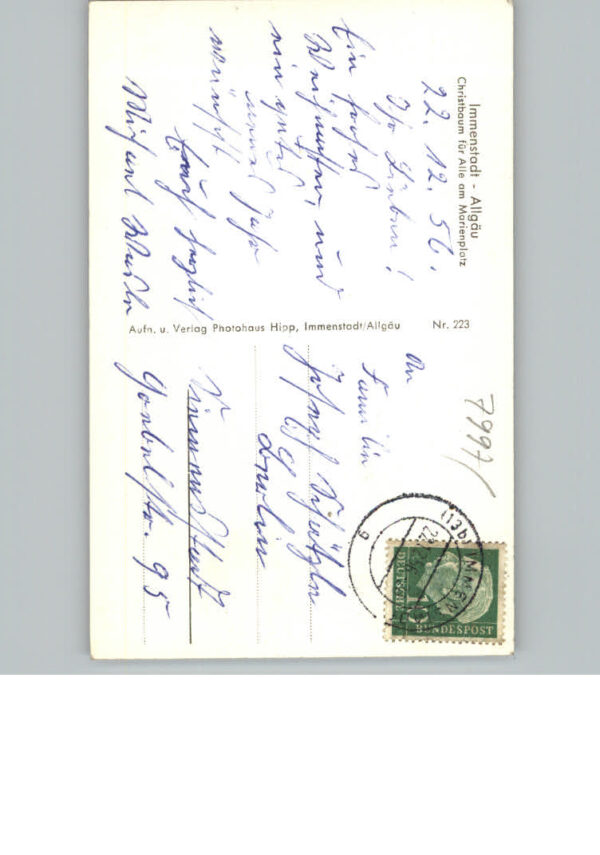 Immenstadt - Allgäu
Christbaum für Alle am Marienplatz
22. 12. 56.
Ihr Lieben!
Ein frohes
Weihnachten, und
ein gutes
neues Jahr
wünscht
Euch herzlich
Aufn. u. Verlag Photohaus Hipp, Immenstadt/Allgäu Nr. 223
An
Familie
Josef
Berlin
Siemensstadt
Goebelstr. 95
7997/
(13b) IMMEN
b
DEUTSCHE
BUNDESPOST